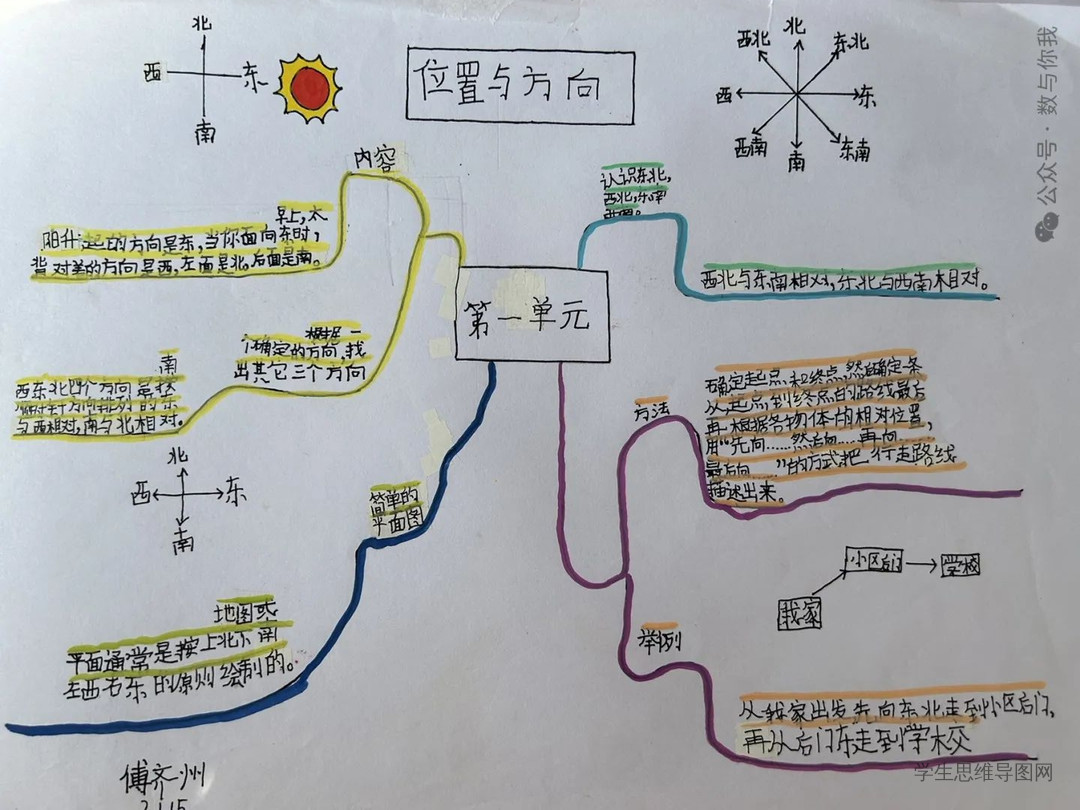 位置与方向
北
西
东
南
北
西北
东北
西
东
西南
南
东南
公众号·数与你我
内容
早上,太
阳升起的方向是东,当你面向东时,
背对着的方向是西,左面是北,后面是南。
根据一
个确定的方向,找
出其它三个方向
南
西东北四个方向是按
顺时针方向排列的东
与西相对,南与北相对。
北
西
东
南
第一单元
认识东北,
西北,东南
西南。
西北与东南相对,东北与西南相对。
方法
确定起点和终点,然确定条
从起点到终点的路线最后
再根据各物体的相对位置,
用“先向……然后向……再向……
最后向……”的方式把行走路线
描述出来。
简单的
平面图
地图或
平面通常是按上北下南
左西右东的原则绘制的。
小区后门
学校
我家
举例
从我家出发先向东北走到小区后门,
再从后门东走到学校
傅齐州
2115
学生思维导图网